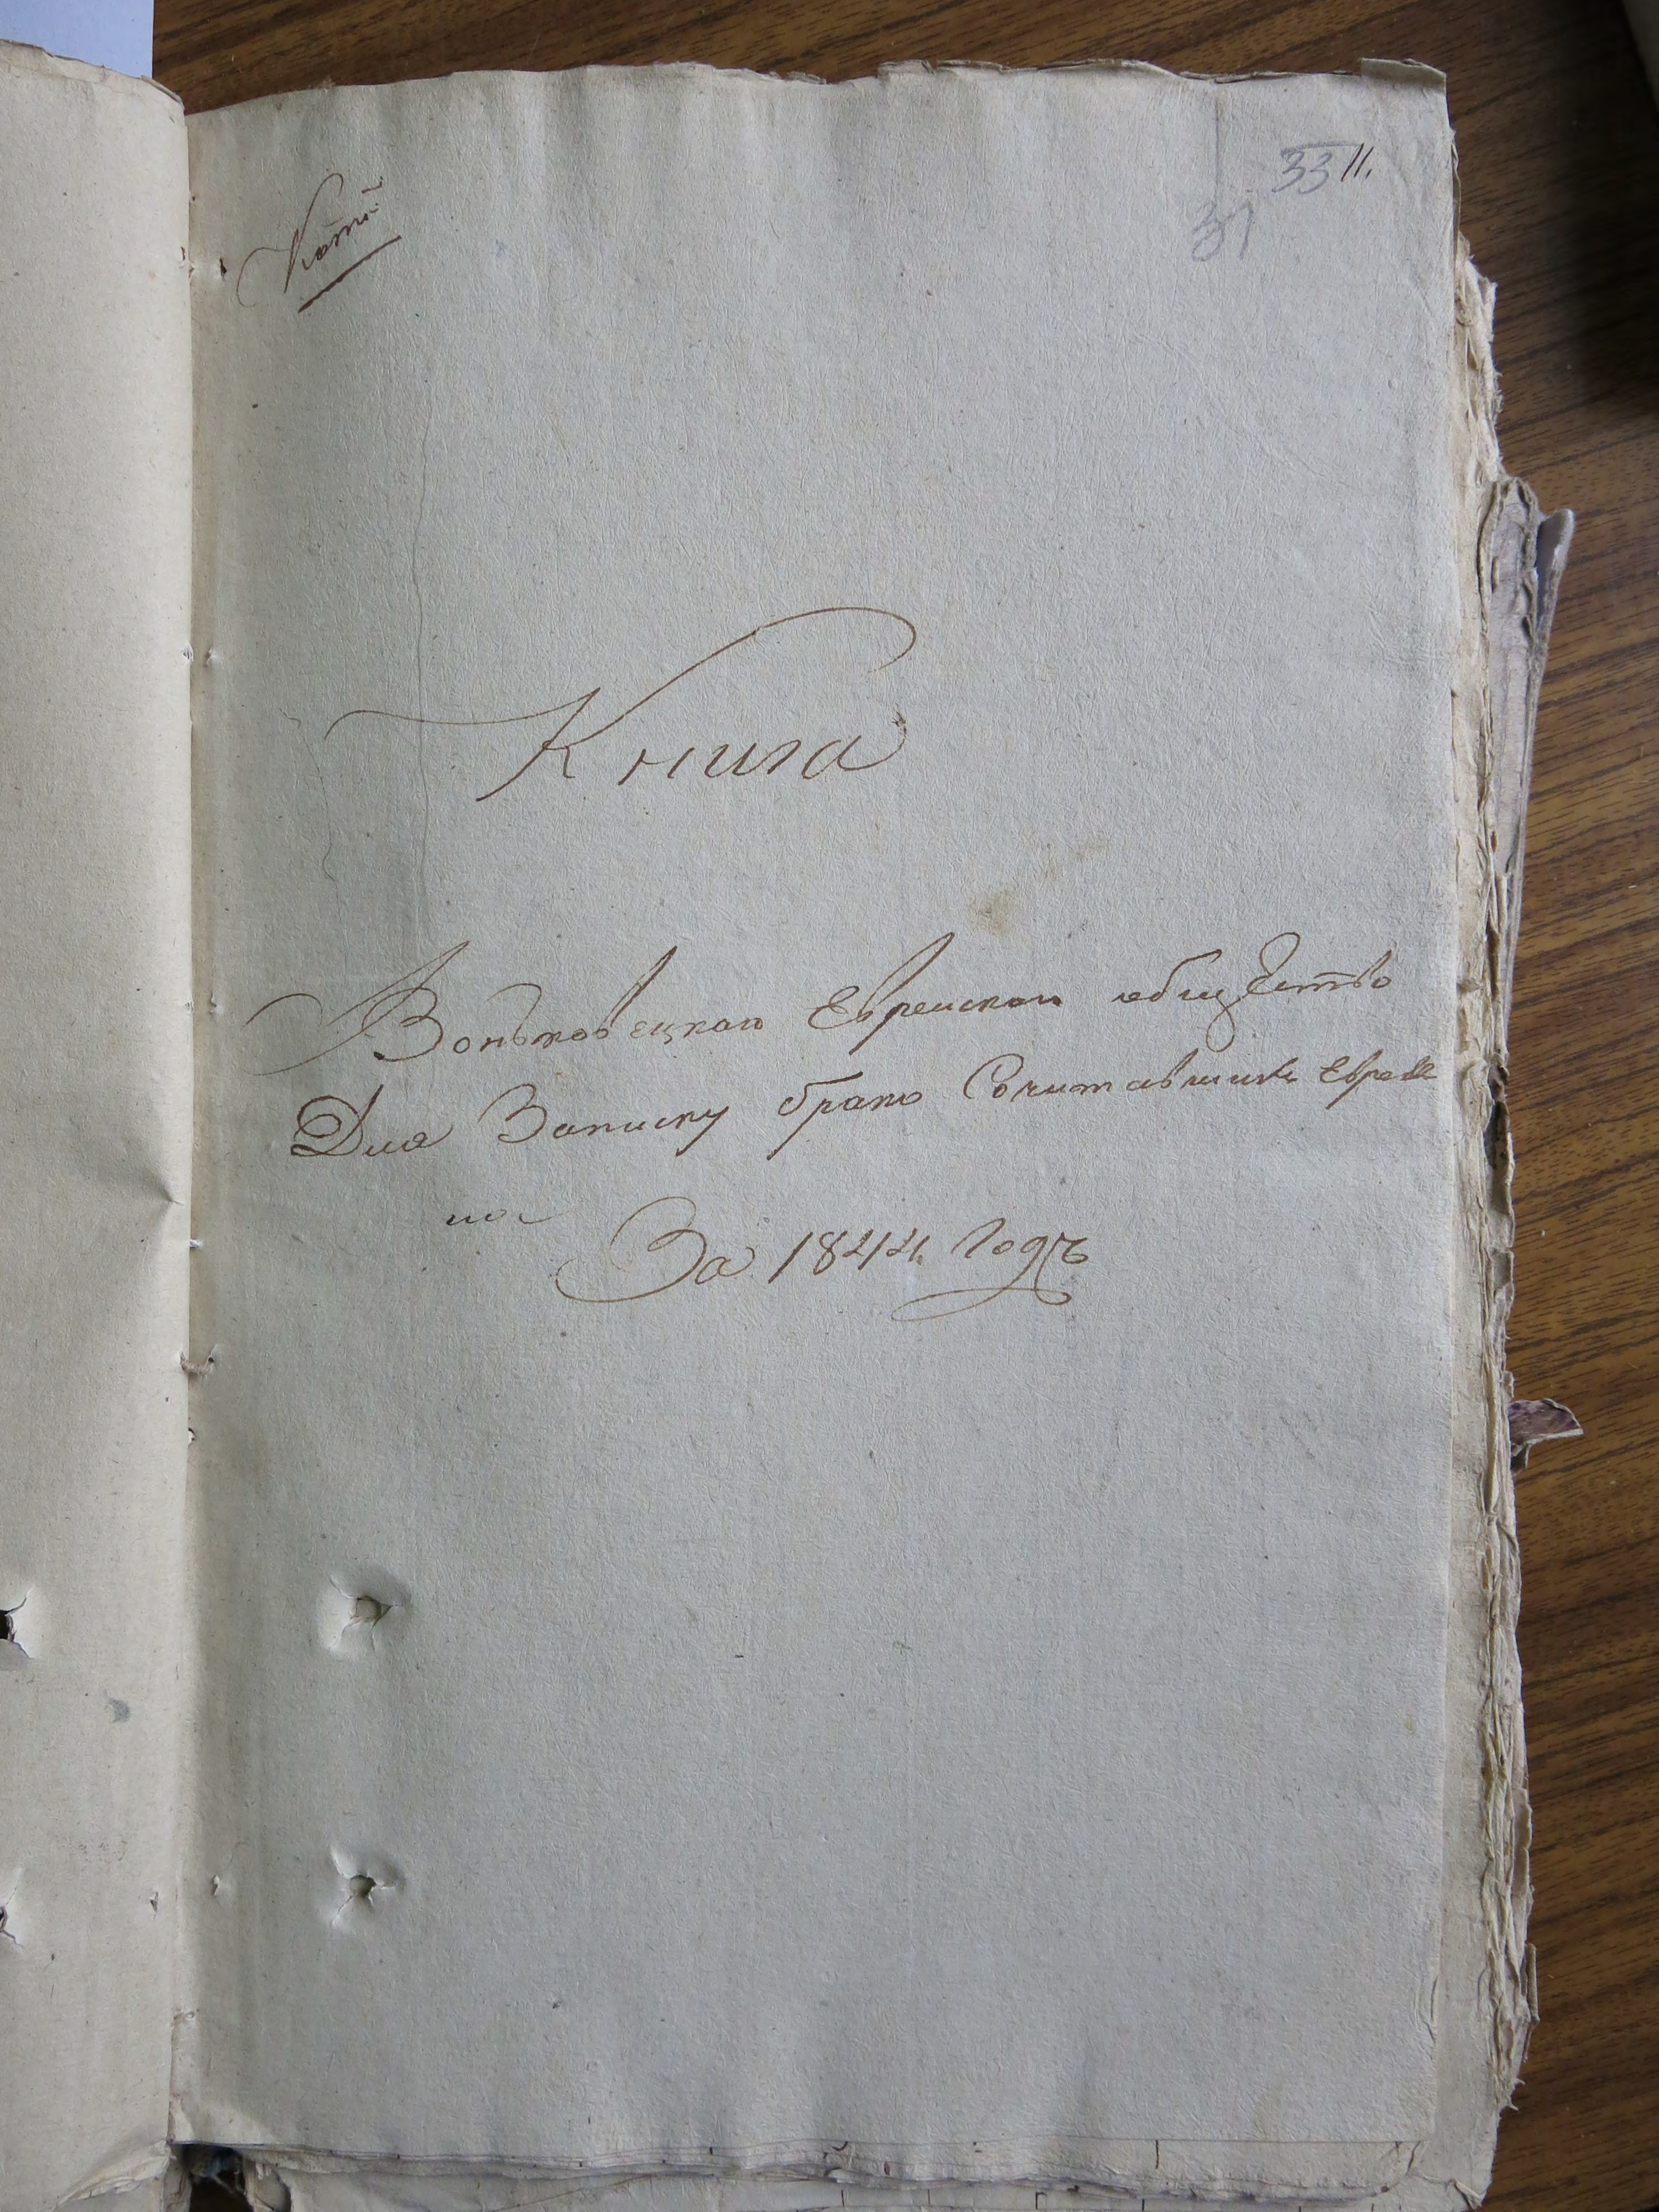 33 11.
31
Копія
Книга
Воньковецкаго Еврейскаго общество
Для Записку брако Сочитавшихъ Еврее
на
За 1844 Годъ